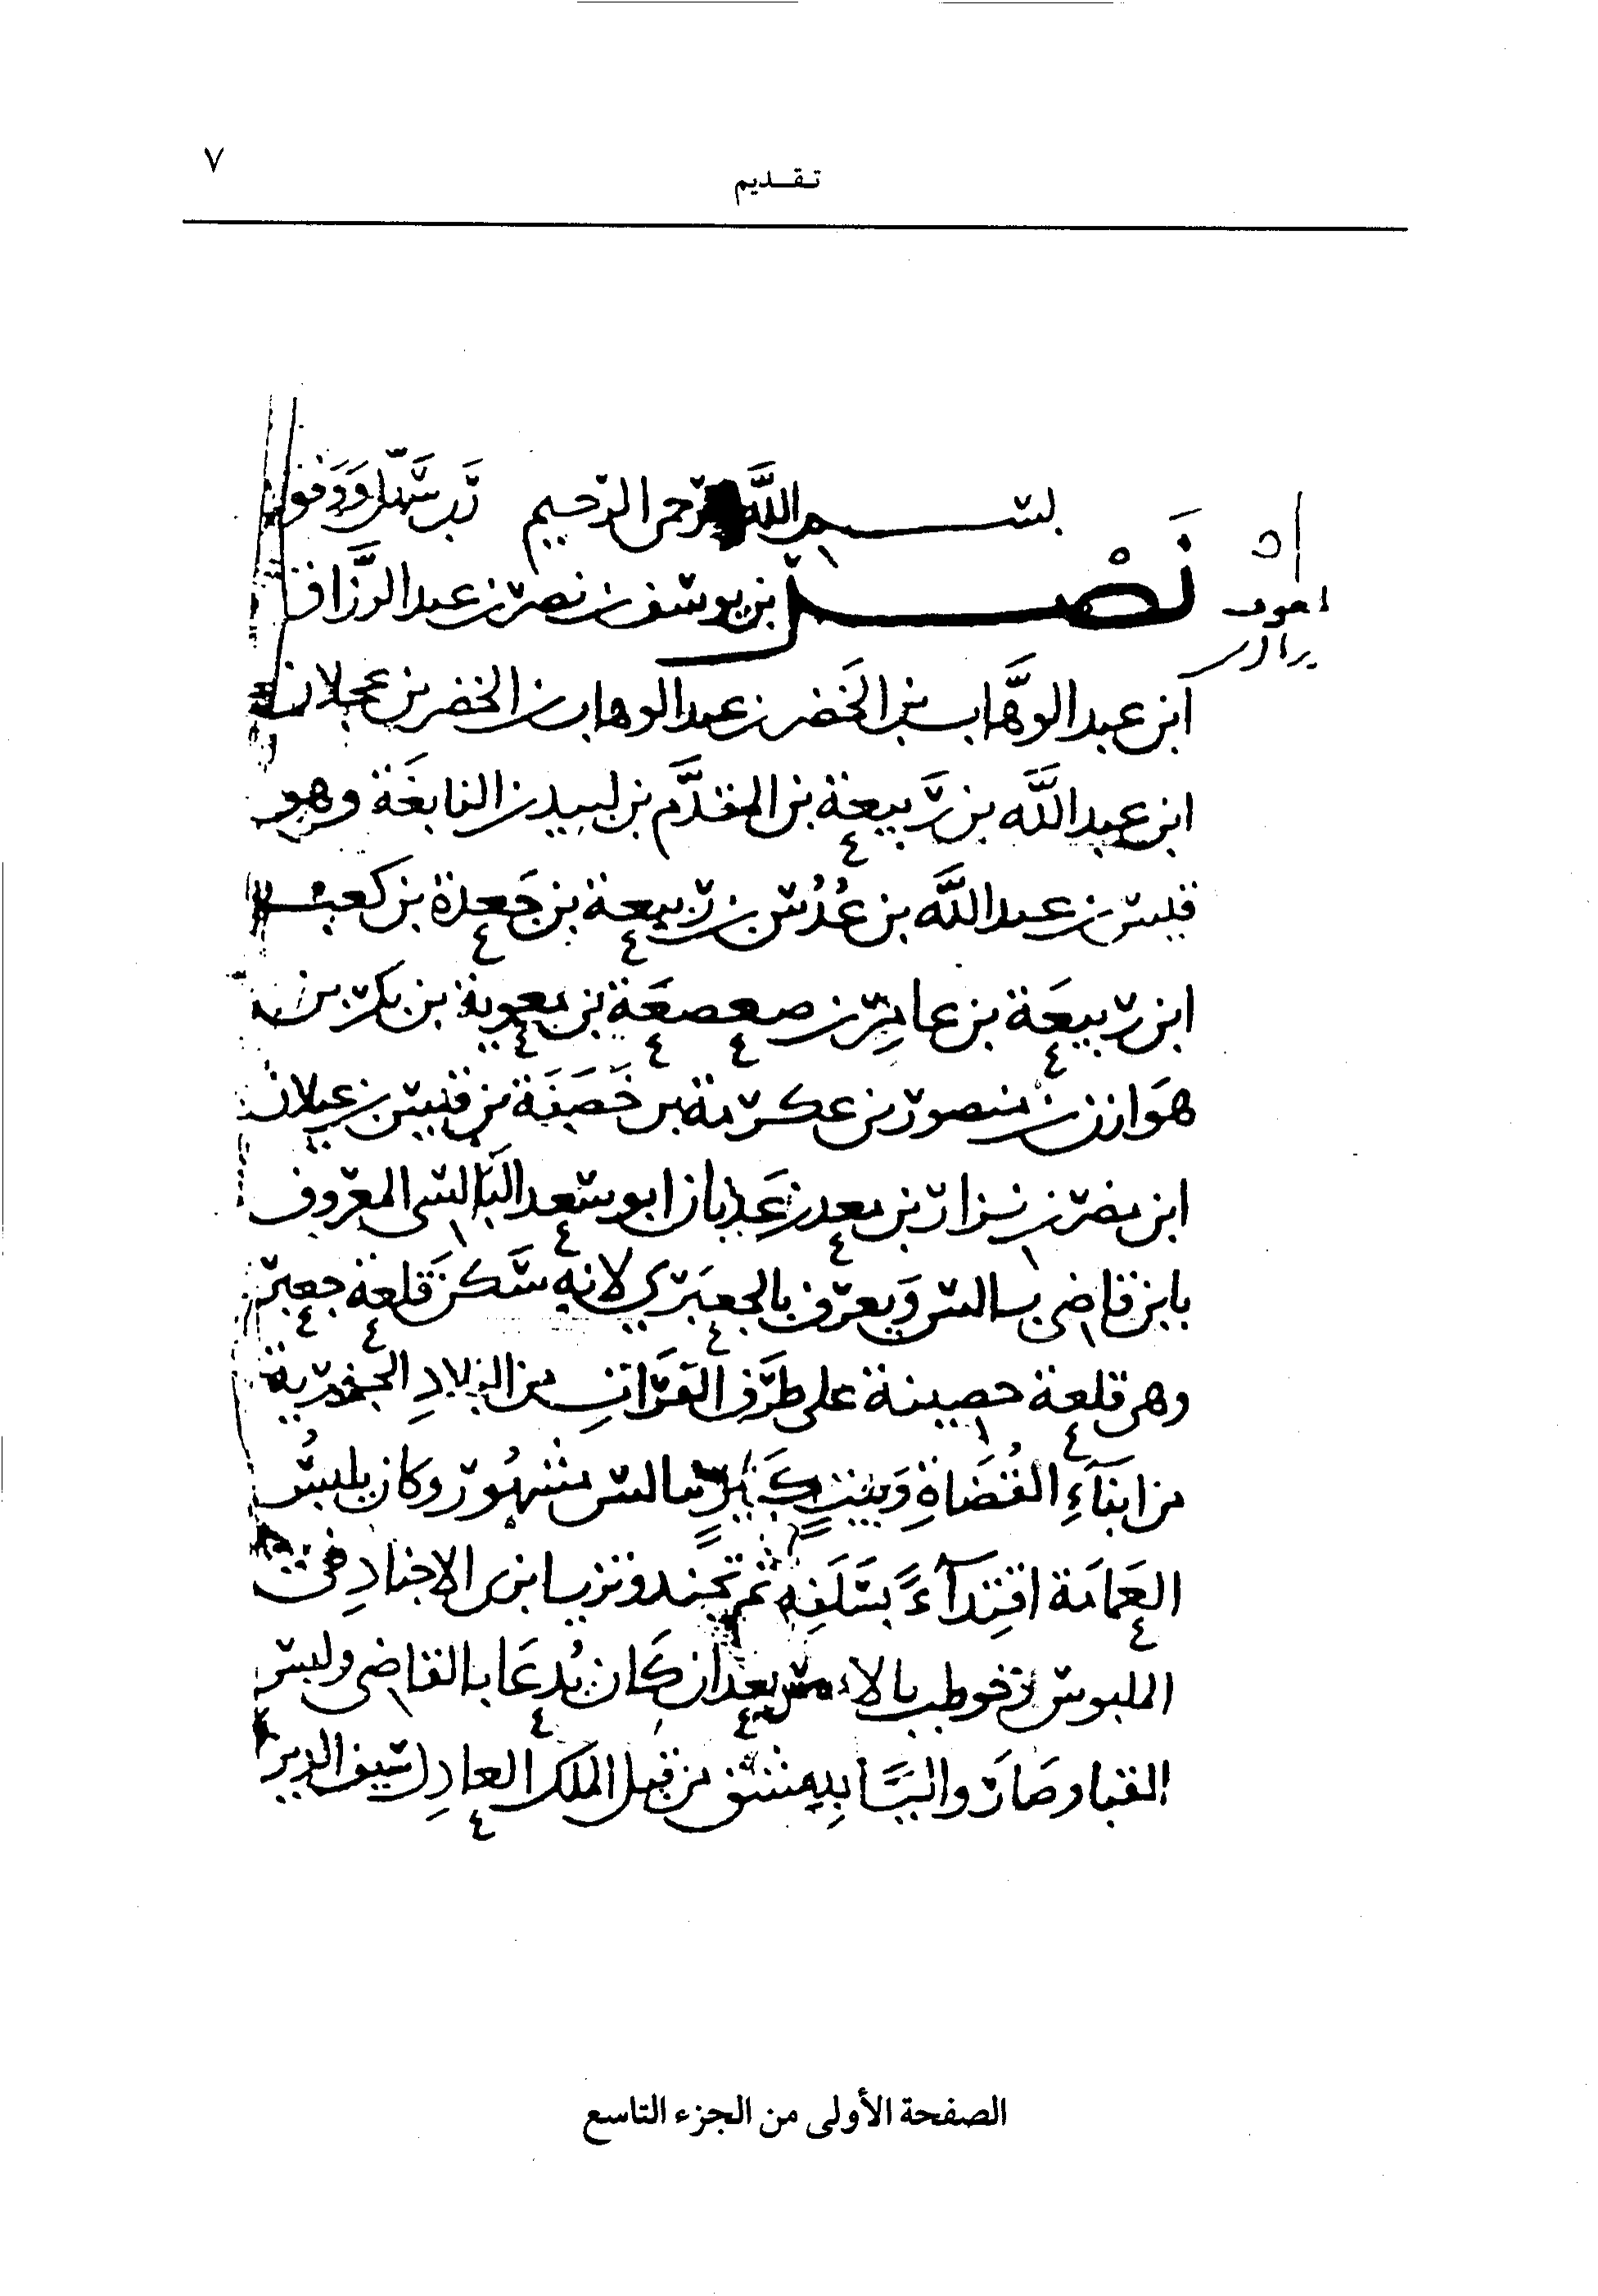 ٧
تقديم
بسم الله الرحمن الرحيم رب سهل ووفق
نصر بن يوسف بن نصر بن عبد الرزاق
ابن عبد الوهاب بن الخضر بن عبد الوهاب بن الخضر بن عجلان
ابن عبد الله بن ربيعة بن المقدم بن لبيد بن النابغة وهو
قيس بن عبد الله بن عُدُس بن ربيعة بن جَعدة بن كعب
ابن ربيعَة بن عامِر بن صعصعَة بن معوية بن بكر بن
هَوازن بن منصور بن عكرمة بن خَصَفَة بن قيس بن عيلان
ابن مضر بن نزار بن معد بن عَدنان ابو سعد البَالسي المعروف
بابن قاضي بالس وَيعرف بالجعبَري لانه سَكن قَلعة جعبر
وهي قلعة حصينة على طَرَف الفُرَاتِ من البلادِ الجزرية
من ابنَآءِ القُضَاةِ وَبيتٍ كَبيرٍ ببالس مشهُور وكان يلبسُ
العَمامَة اقتِدَآءً بسَلَفِهِ ثم تجند وتزيا بزي الاجنادِ في
الملبوس وخوطب بالا بعد ان كَان يُدعَا بالقاضي ولبس
القبا وصَارَ واليًا بدِمشق من قبل الملك العادِل سيف الدين
الصفحة الأولى من الجزء التاسع